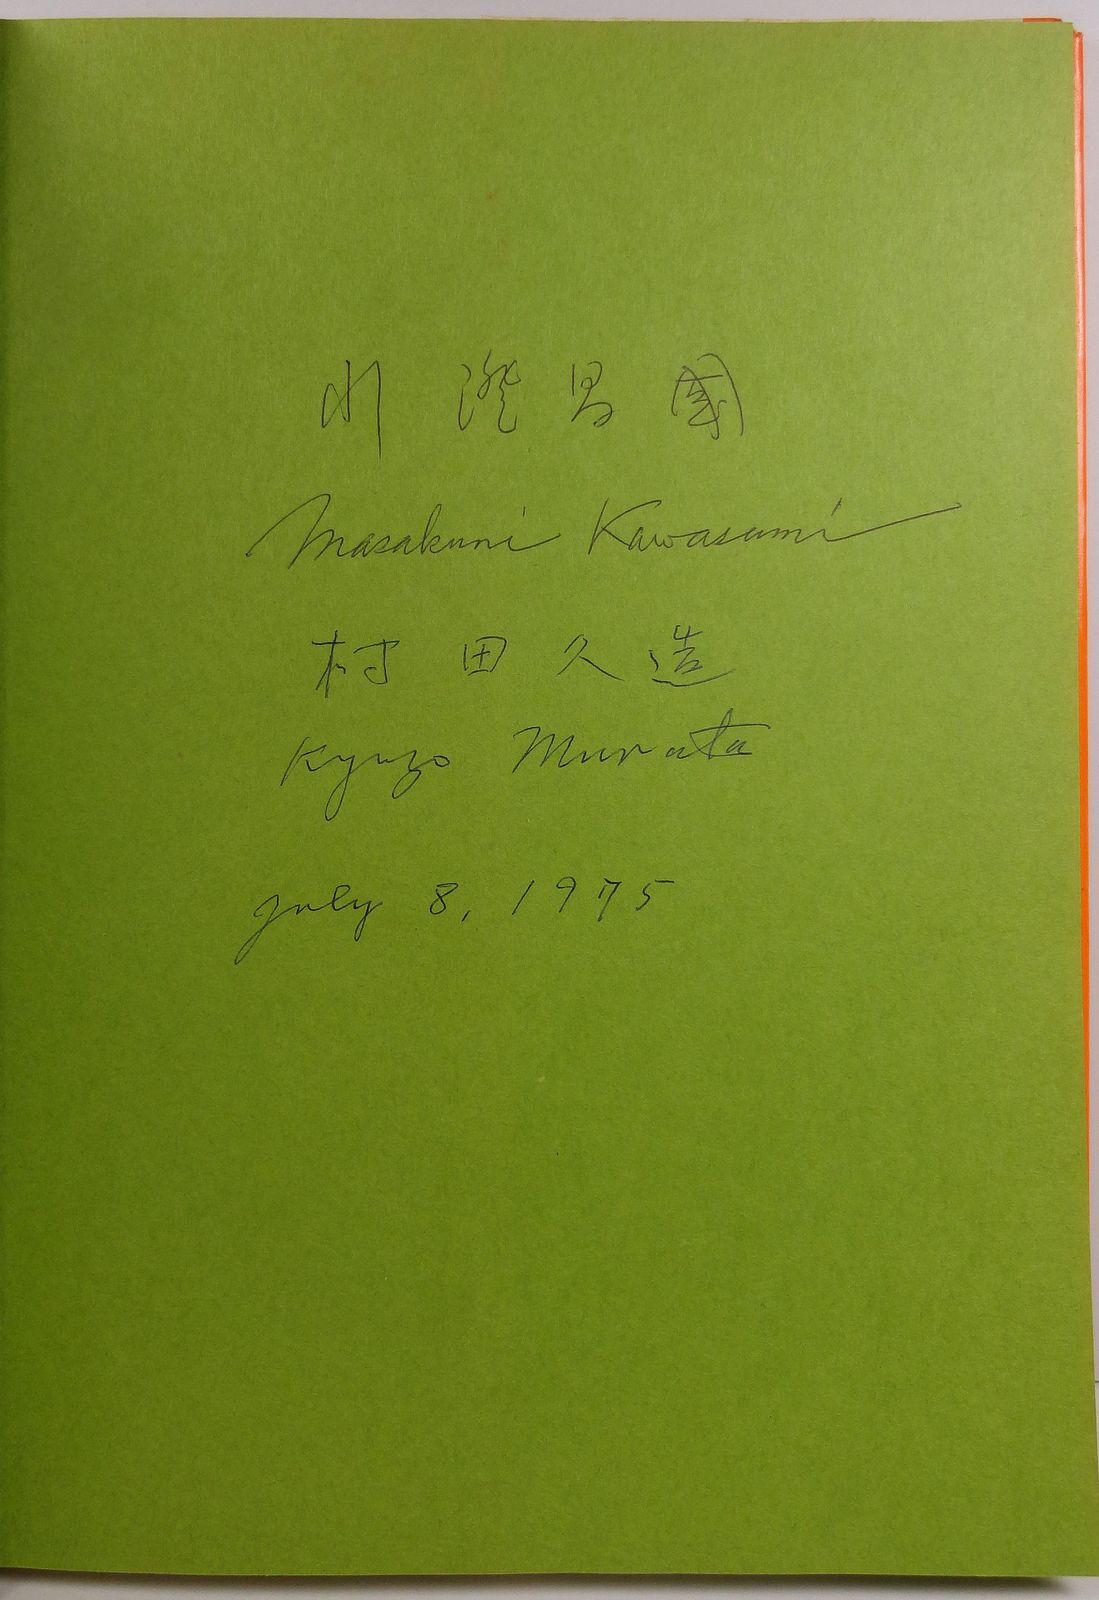 川澄昌國
Masakuni Kawasumi
村田久造
Kyuzo Murata
July 8, 1975